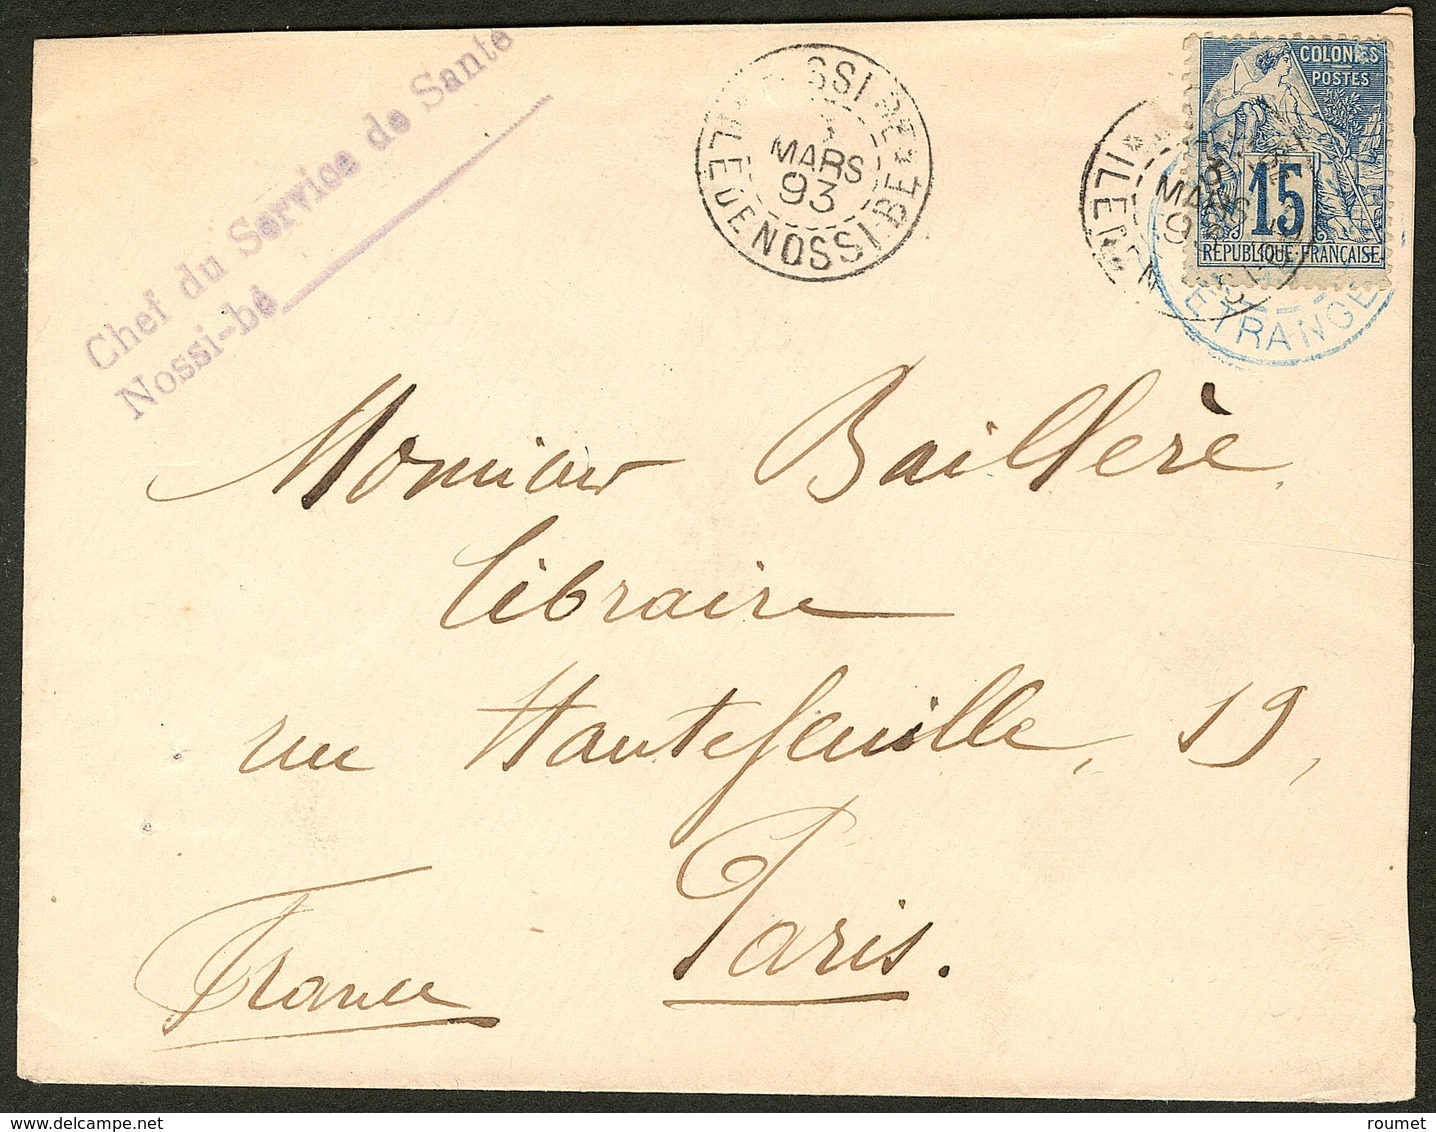 Chef du Service de Santé
Nossi-bé
NOSSI BÉ
MARS
93
ILE DE NOSSI-BÉ
COLONIES
POSTES
15
RÉPUBLIQUE FRANÇAISE
ILE DE N
MARS
9
ETRANGE
Monsieur Baillère,
libraire
rue Hautefeuille, 19,
Paris.
France
delcampe.net
roumet